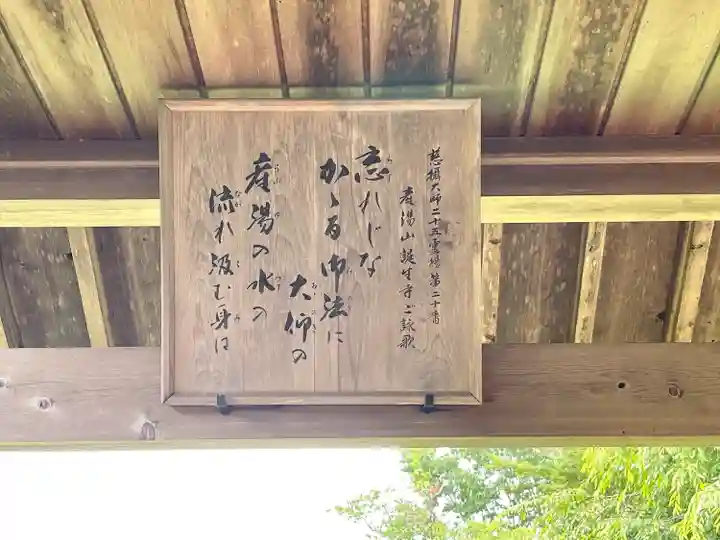 慈攝大師二十五霊場第二十番
産湯山誕生寺ご詠歌
忘れじな
かゝる御法に
大仰の
産湯の水の
流れ汲む身は